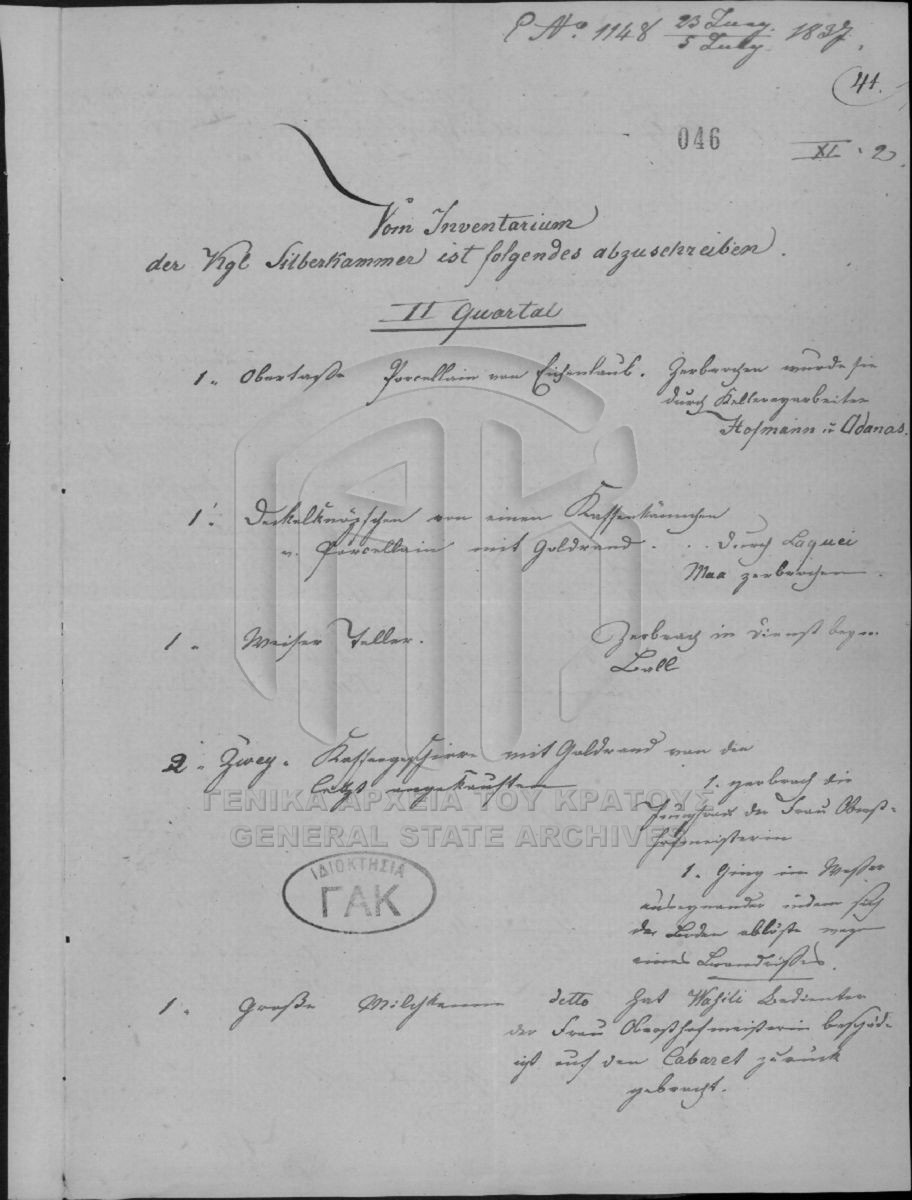 E No. 1148 23 Juny. / 5 July. 1837.
41.
046
XI. 2
Vom Inventarium
der Kgl Silberkammer ist folgendes abzuschreiben.
II Quartal
1 " Obertaße Porcellain von Eichenlaub. Zerbrochen wurde sie
durch Kellereyarbeiter
Hofmann u Adanas.
1 " Deckelknöpfchen von einem Kaffeekännchen
v. Porcellain mit Goldrand . . . durch Laquei
Maa zerbrochen.
1 " Weiser Teller. Zerbrach in Dienst beym
Ball
2 " Zwey " Kaffeegeschirre mit Goldrand von die
letzt angekauften
1. zerbrach die
Jungfrau der Frau Oberst-
hofmeisterin
1. Ging im Waßer
auseynander indem sich
der Boden ablößte wegen
eines Brandrißes.
1 " Große Milchkanne detto hat Waßili Bedienter
der Frau Obersthofmeisterin beschäd-
igt auf den Cabaret zurück
gebracht.
ΓΕΝΙΚΑ ΑΡΧΕΙΑ ΤΟΥ ΚΡΑΤΟΥΣ
GENERAL STATE ARCHIVES
ΙΔΙΟΚΤΗΣΙΑ
ΓΑΚ